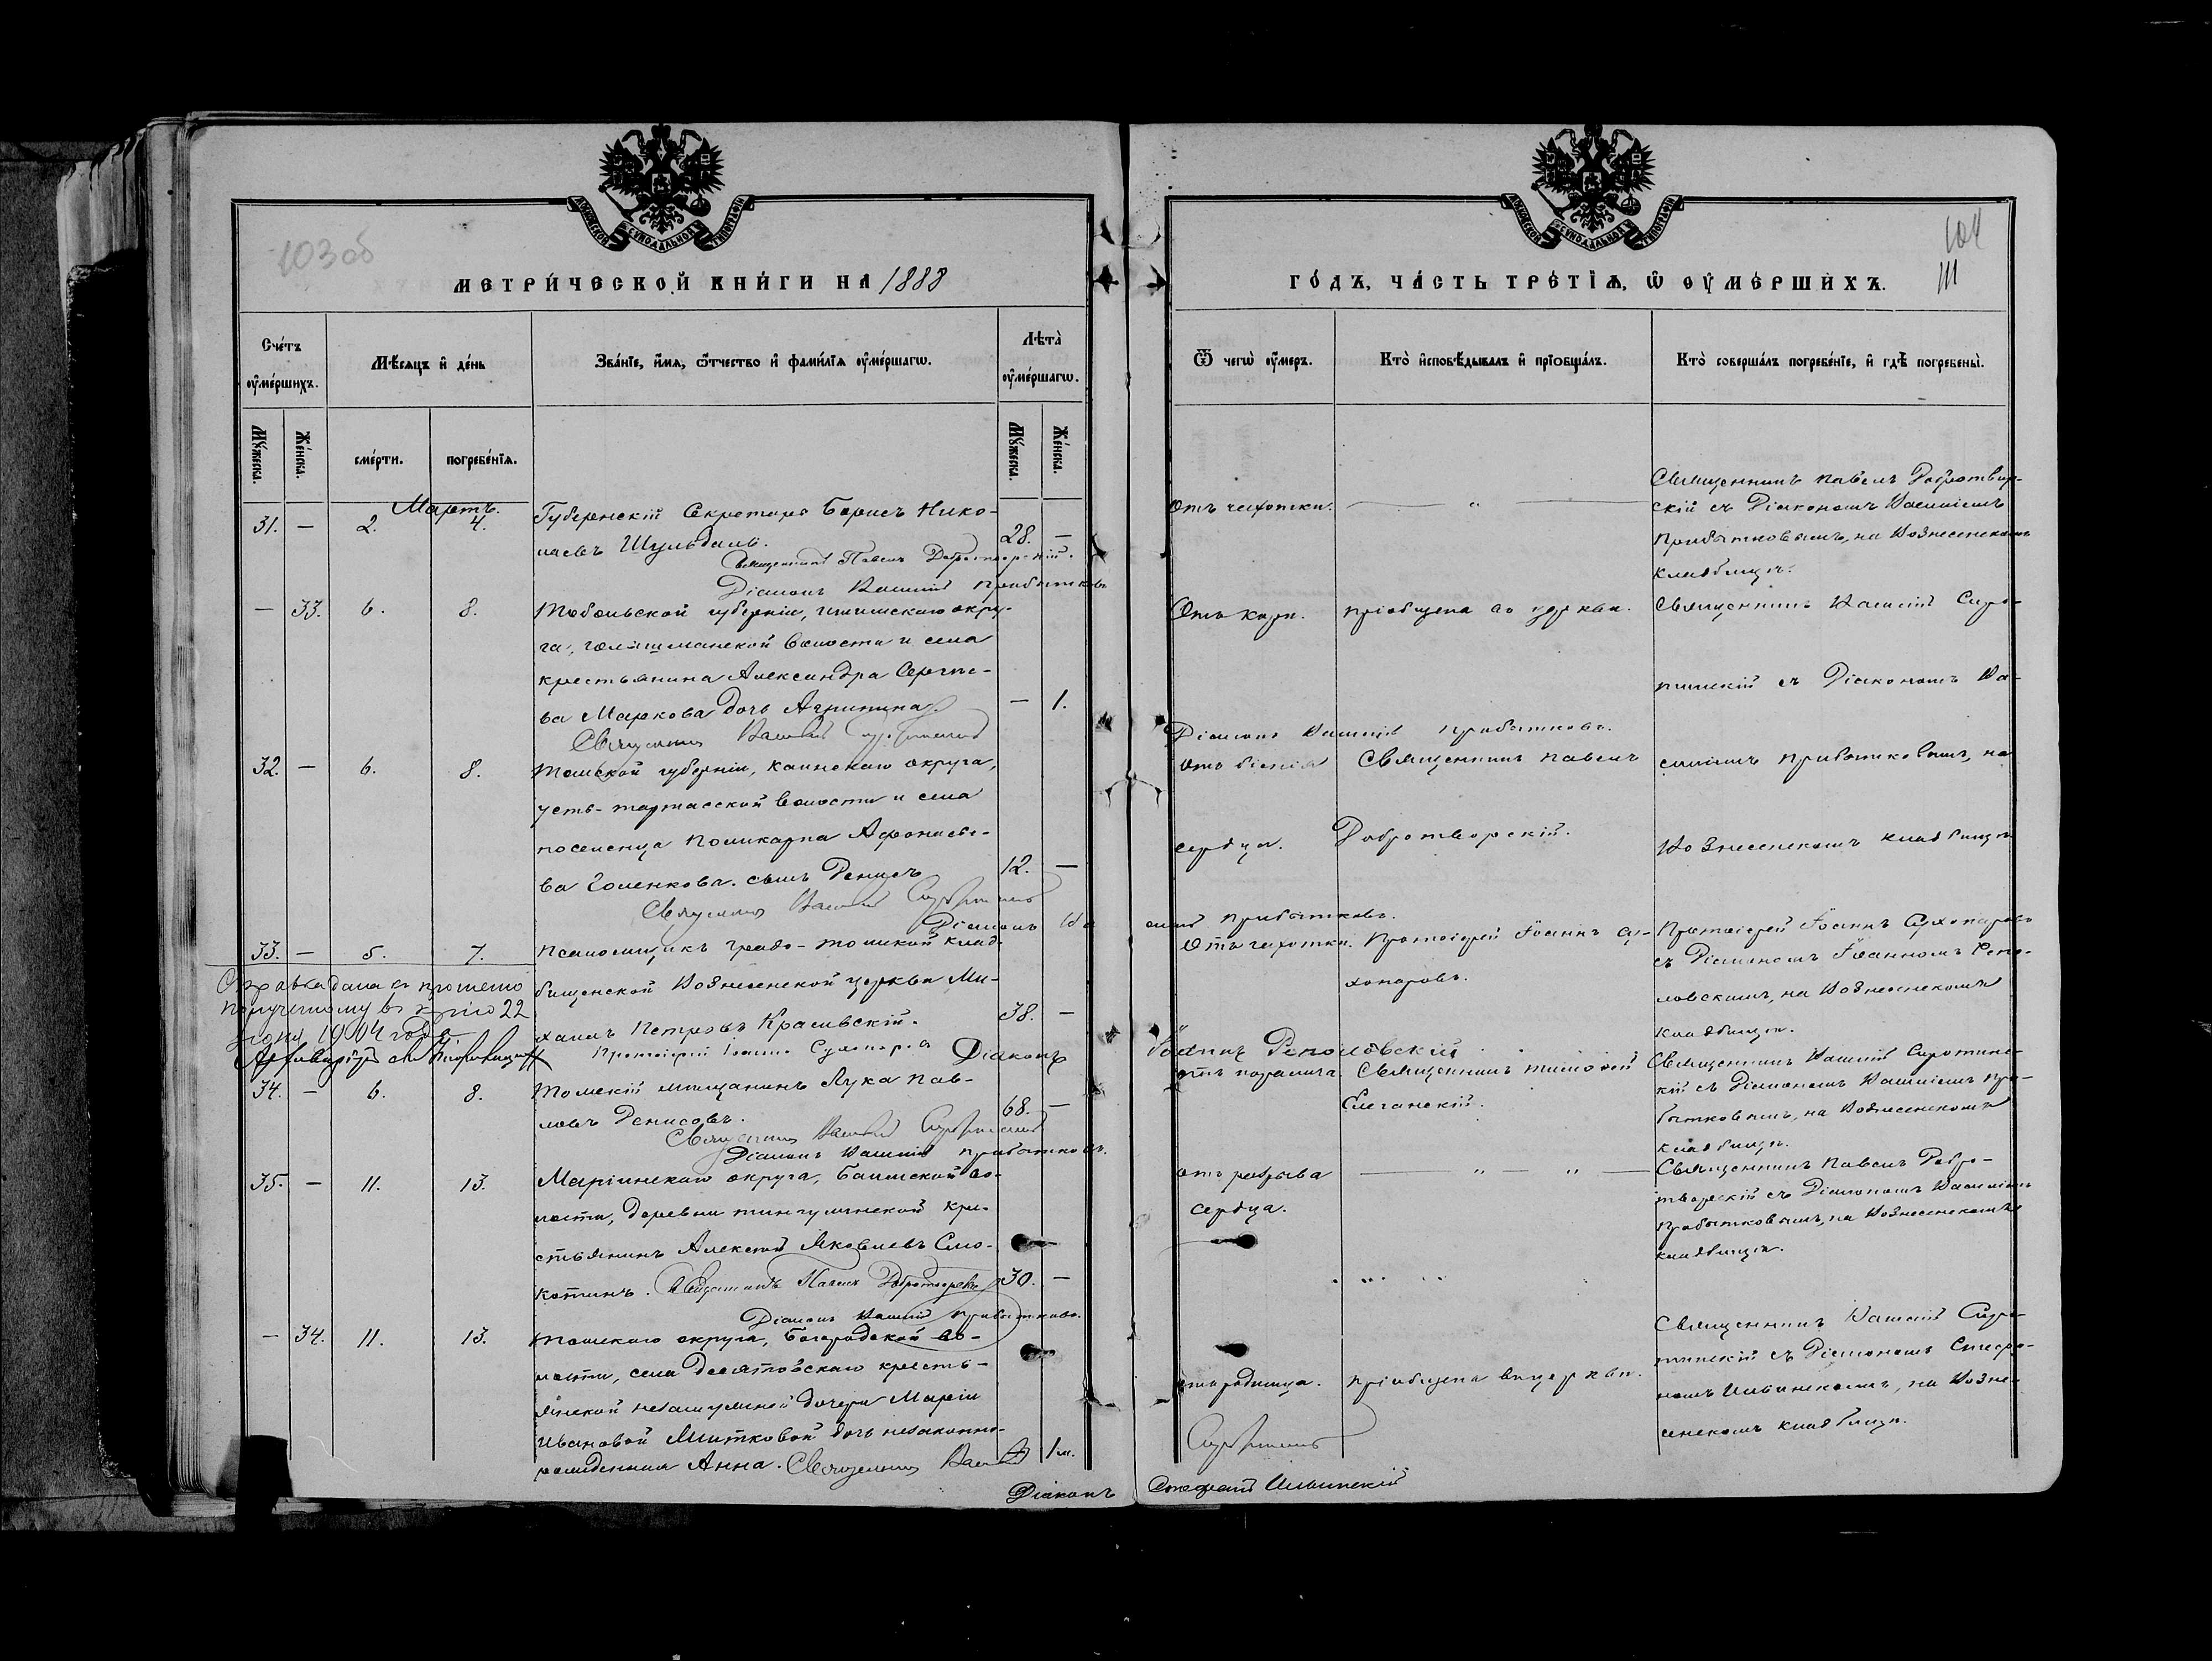 103 об
МЕТРИ́ЧЕСКОЙ КНИ́ГИ НА 1888
Сче́тъ оу҆ме́ршихъ.
Мѣ́сяцъ и҆ де́нь
Зва́нїе, и҆́мя, ѻ҆́тчество и҆ фами́лїя оу҆ме́ршагѡ.
Лѣта̀ оу҆ме́ршагѡ.
Му́жеска.
Же́нска.
сме́рти.
погребе́нїя.
Му́жеска.
Же́нска.
Мартъ.
31. — 2. 4.
Губернскій Секретарь Борисъ Нико-
лаевъ Шульдаль. 28. —
Священникъ Павелъ Добротворскій.
Діаконъ Василій Прибытковъ
— 33. 6. 8.
Тобольской губерніи, ишимскаго окру-
га, голышмановской волости и села
крестьянина Александра Сергѣе-
ва Маркова дочь Агрипина. — 1.
Священникъ Василій Сиротинскій
32. — 6. 8.
Томской губерніи, каинскаго округа,
усть-тартасской волости и села
поселенца Поликарпа Афонасье-
ва Голенкова. сынъ Денисъ 12. —
Священникъ Василій Сиротинскій
Діаконъ Ва
33. — 5. 7.
Псаломщикъ градо-томской клад-
бищенской Вознесенской церкви Ми-
хаилъ Петровъ Красивскій. 38. —
Протоіерей Іоаннъ Сухопаровъ Діаконъ
Справка дана по прошенію
полученному въ 22
1904 года
34. — 6. 8.
Томскій мѣщанинъ Лука Пав-
ловъ Денисовъ. 68. —
Священникъ Василій Сиротинскій
Діаконъ Василій Прибытковъ.
35. — 11. 13.
Маріинскаго округа, Баимской во-
лости, деревни тингулинской кре-
стьянинъ Алексѣй Яковлевъ Смо-
котинъ. Священникъ Павелъ Добротворскій 30. —
Діаконъ Василій Прибытковъ.
— 34. 11. 13.
Томскаго округа, Богородской во-
лости, села Десятовскаго кресть-
янской незамужней дочери Маріи
Ивановой Митковой дочь незаконно-
рожденная Анна. Священникъ Василій 1 м.
Діаконъ
104
111
ГО́ДЪ, ЧА́СТЬ ТРЕ́ТЇЯ, Ѡ҆ ОУ҆МЕ́РШИХЪ.
Ѿ чегѡ̀ оу҆́меръ.
Кто̀ и҆сповѣ́дывалъ и҆ прїобща́лъ.
Кто̀ соверша́лъ погребе́нїе, и҆ гдѣ̀ погребены̀.
Отъ чахотки. — „ —
Священникъ Павелъ Добротвор-
скій съ Діакономъ Василіемъ
Прибытковымъ, на Вознесенскомъ
кладбищѣ.
Отъ кори. пріобщена въ церкви. Священникъ Василій Сиро-
тинскій съ Діакономъ Ва-
Діаконъ Василій Прибытковъ.
отъ біенія Священникъ Павелъ силіемъ Прибытковымъ, на
сердца. Добротворскій. Вознесенскомъ кладбищѣ
силій Прибытковъ.
Отъ чахотки. Протоіерей Іоаннъ Су-
хопаровъ.
Протоіерей Іоаннъ Сухопаровъ
съ Діакономъ Іоанномъ Репо-
ловскимъ, на Вознесенскомъ
кладбищѣ.
Іоаннъ Реполовскій
отъ паралича. Священникъ Тимоѳей
Елеганскій.
Священникъ Василій Сиротинс-
кій съ Діакономъ Василіемъ При-
бытковымъ, на Вознесенскомъ
кладбищѣ.
отъ разрыва
сердца.
— „ — „ —
Священникъ Павелъ Добро-
творскій съ Діакономъ Василіемъ
Прибытковымъ, на Вознесенскомъ
кладбищѣ.
отъ родимца. пріобщена въ церкви.
Священникъ Василій Сиро-
тинскій съ Діакономъ Стефа-
номъ Ильинскимъ, на Возне-
сенскомъ кладбищѣ.
Сиротинскій
Стефанъ Ильинскій